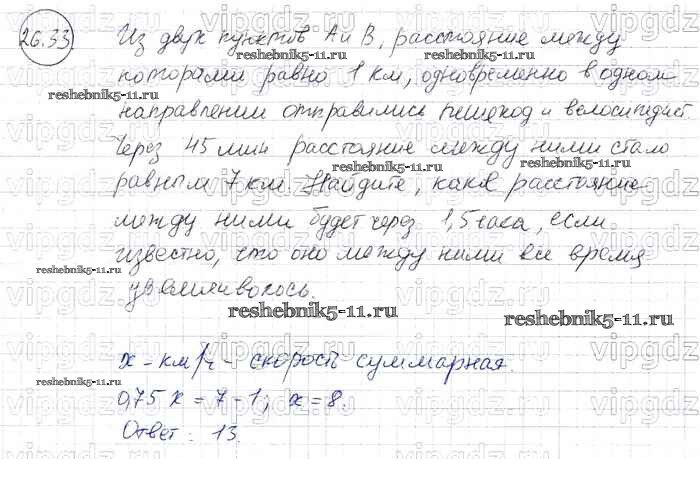 26.33.
Из двух пунктов А и В, расстояние между
которыми равно 1 км, одновременно в одном
направлении отправились пешеход и велосипедист.
Через 45 мин расстояние между ними стало
равным 7 км. Найдите, какое расстояние
между ними будет через 1,5 часа, если
известно, что оно между ними все время
увеличивалось.
х - км/ч - скорость суммарная.
0,75 х = 7 - 1; х = 8.
Ответ: 13.
vipgdz.ru
reshebnik5-11.ru
reshebnik5-11.ru
reshebnik5-11.ru
reshebnik5-11.ru
reshebnik5-11.ru
reshebnik5-11.ru
reshebnik5-11.ru